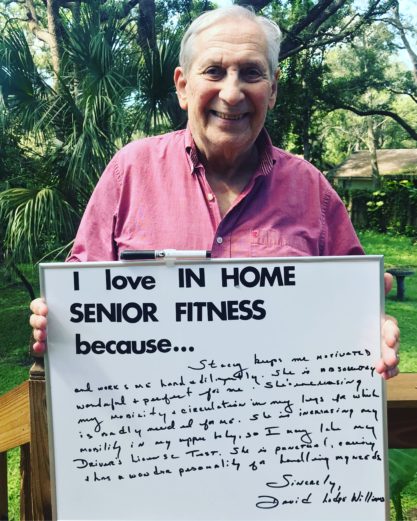 I love IN HOME
SENIOR FITNESS
because...
Stacy keeps me motivated
and works me hard + diligently. She is absolutely
wonderful + perfect for me. She's increasing
my mobility + circulation in my legs for which
is sadly needed for me. She is increasing my
mobility in my upper body, so I may take my
Driver's License Test. She is personal, caring
+ has a wonder personality for handling my needs
Sincerely,
David Williams